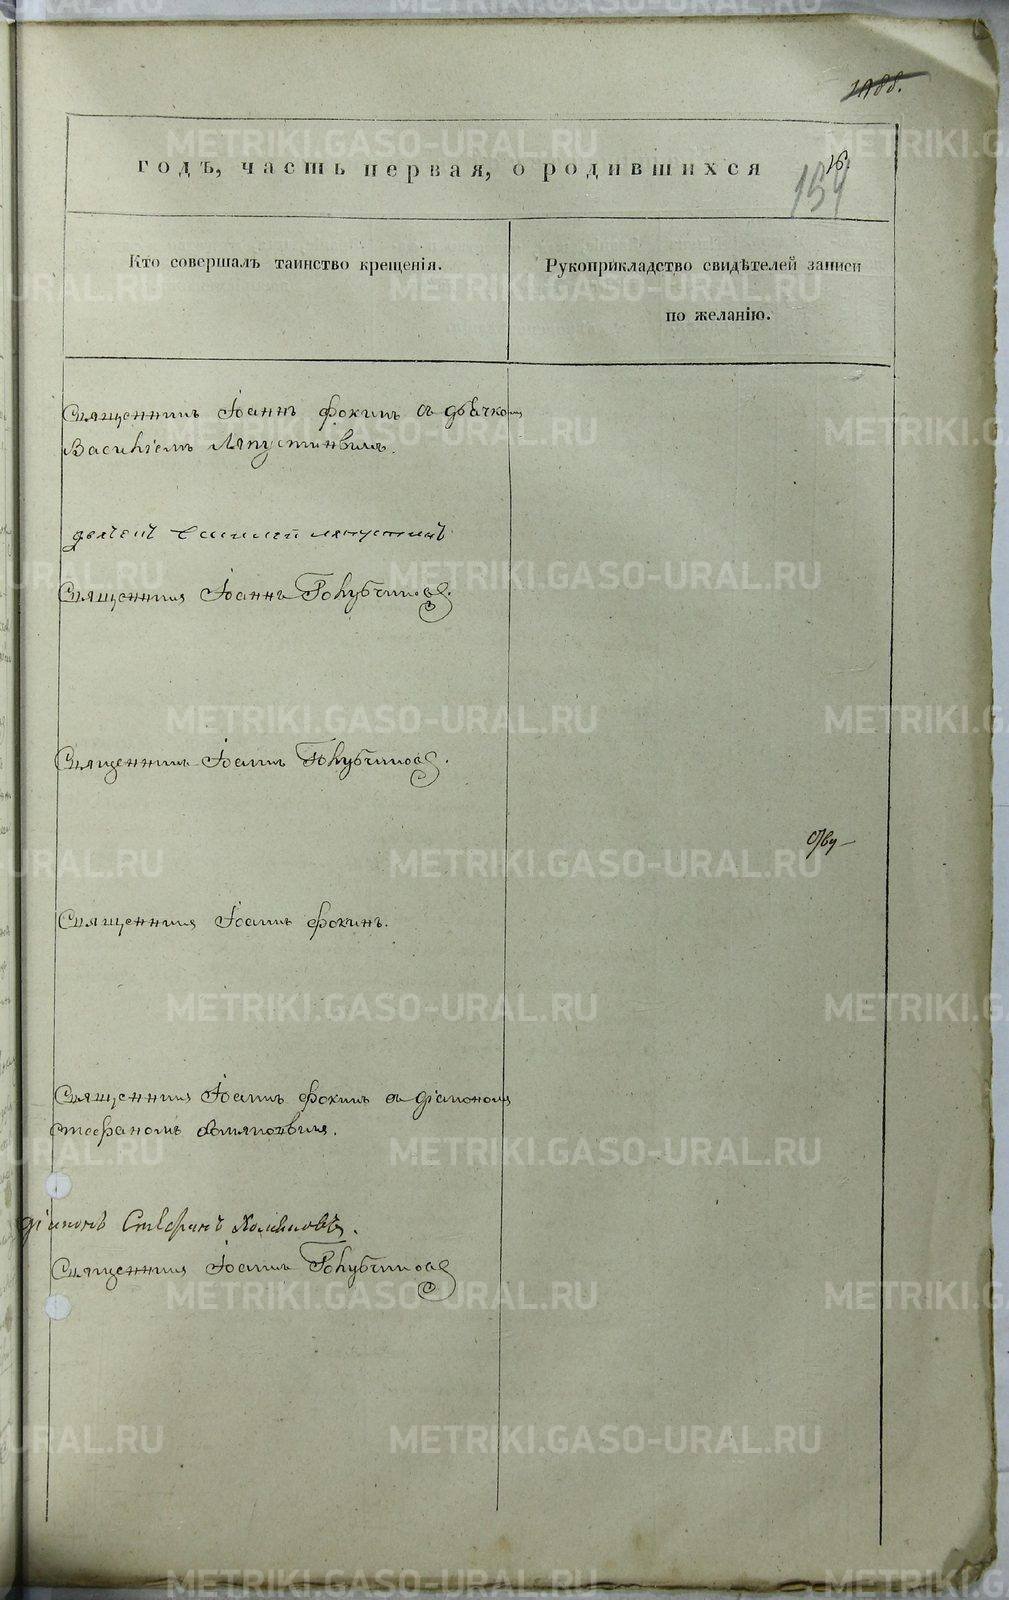 годъ, часть первая, о родившихся
16
154
Кто совершалъ таинство крещенія.
Рукоприкладство свидѣтелей записи
по желанію.
Священникъ Іоаннъ Фокинъ съ дьячкомъ
Василіемъ Ляпустинымъ.
дьячекъ Василей Ляпустинъ
Священникъ Іоаннъ Голубчиковъ.
Священникъ Іоаннъ Голубчиковъ.
Священникъ Іоаннъ Фокинъ.
Священникъ Іоаннъ Фокинъ съ діакономъ
Стефаномъ
діаконъ Стефанъ
Священникъ Іоаннъ Голубчиковъ
METRIKI.GASO-URAL.RU